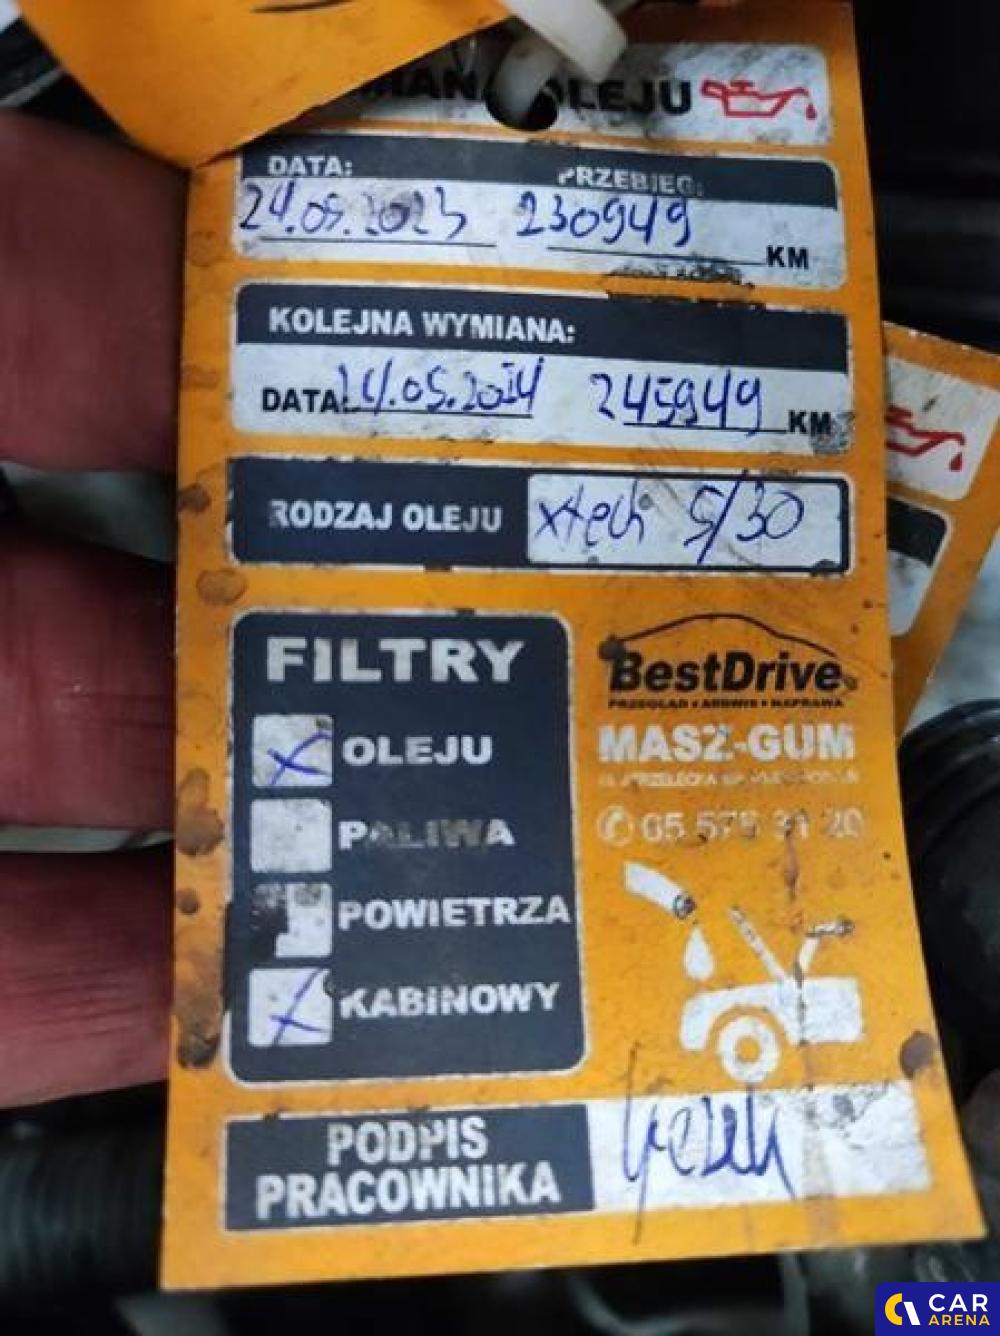 OLEJU
DATA: PRZEBIEG:
24.05.2023 230949 KM
KOLEJNA WYMIANA:
DATA 24.05.2024 245949 KM
RODZAJ OLEJU xtech 5/30
FILTRY
OLEJU
PALIWA
POWIETRZA
KABINOWY
BestDrive
PRZEGLĄD • SERWIS • NAPRAWA
MASZ-GUM
PODPIS
PRACOWNIKA
CAR
ARENA